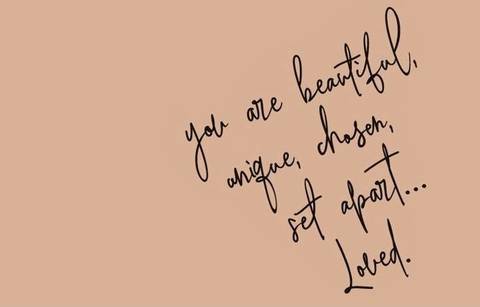 you are beautiful,
unique, chosen,
set apart...
Loved.